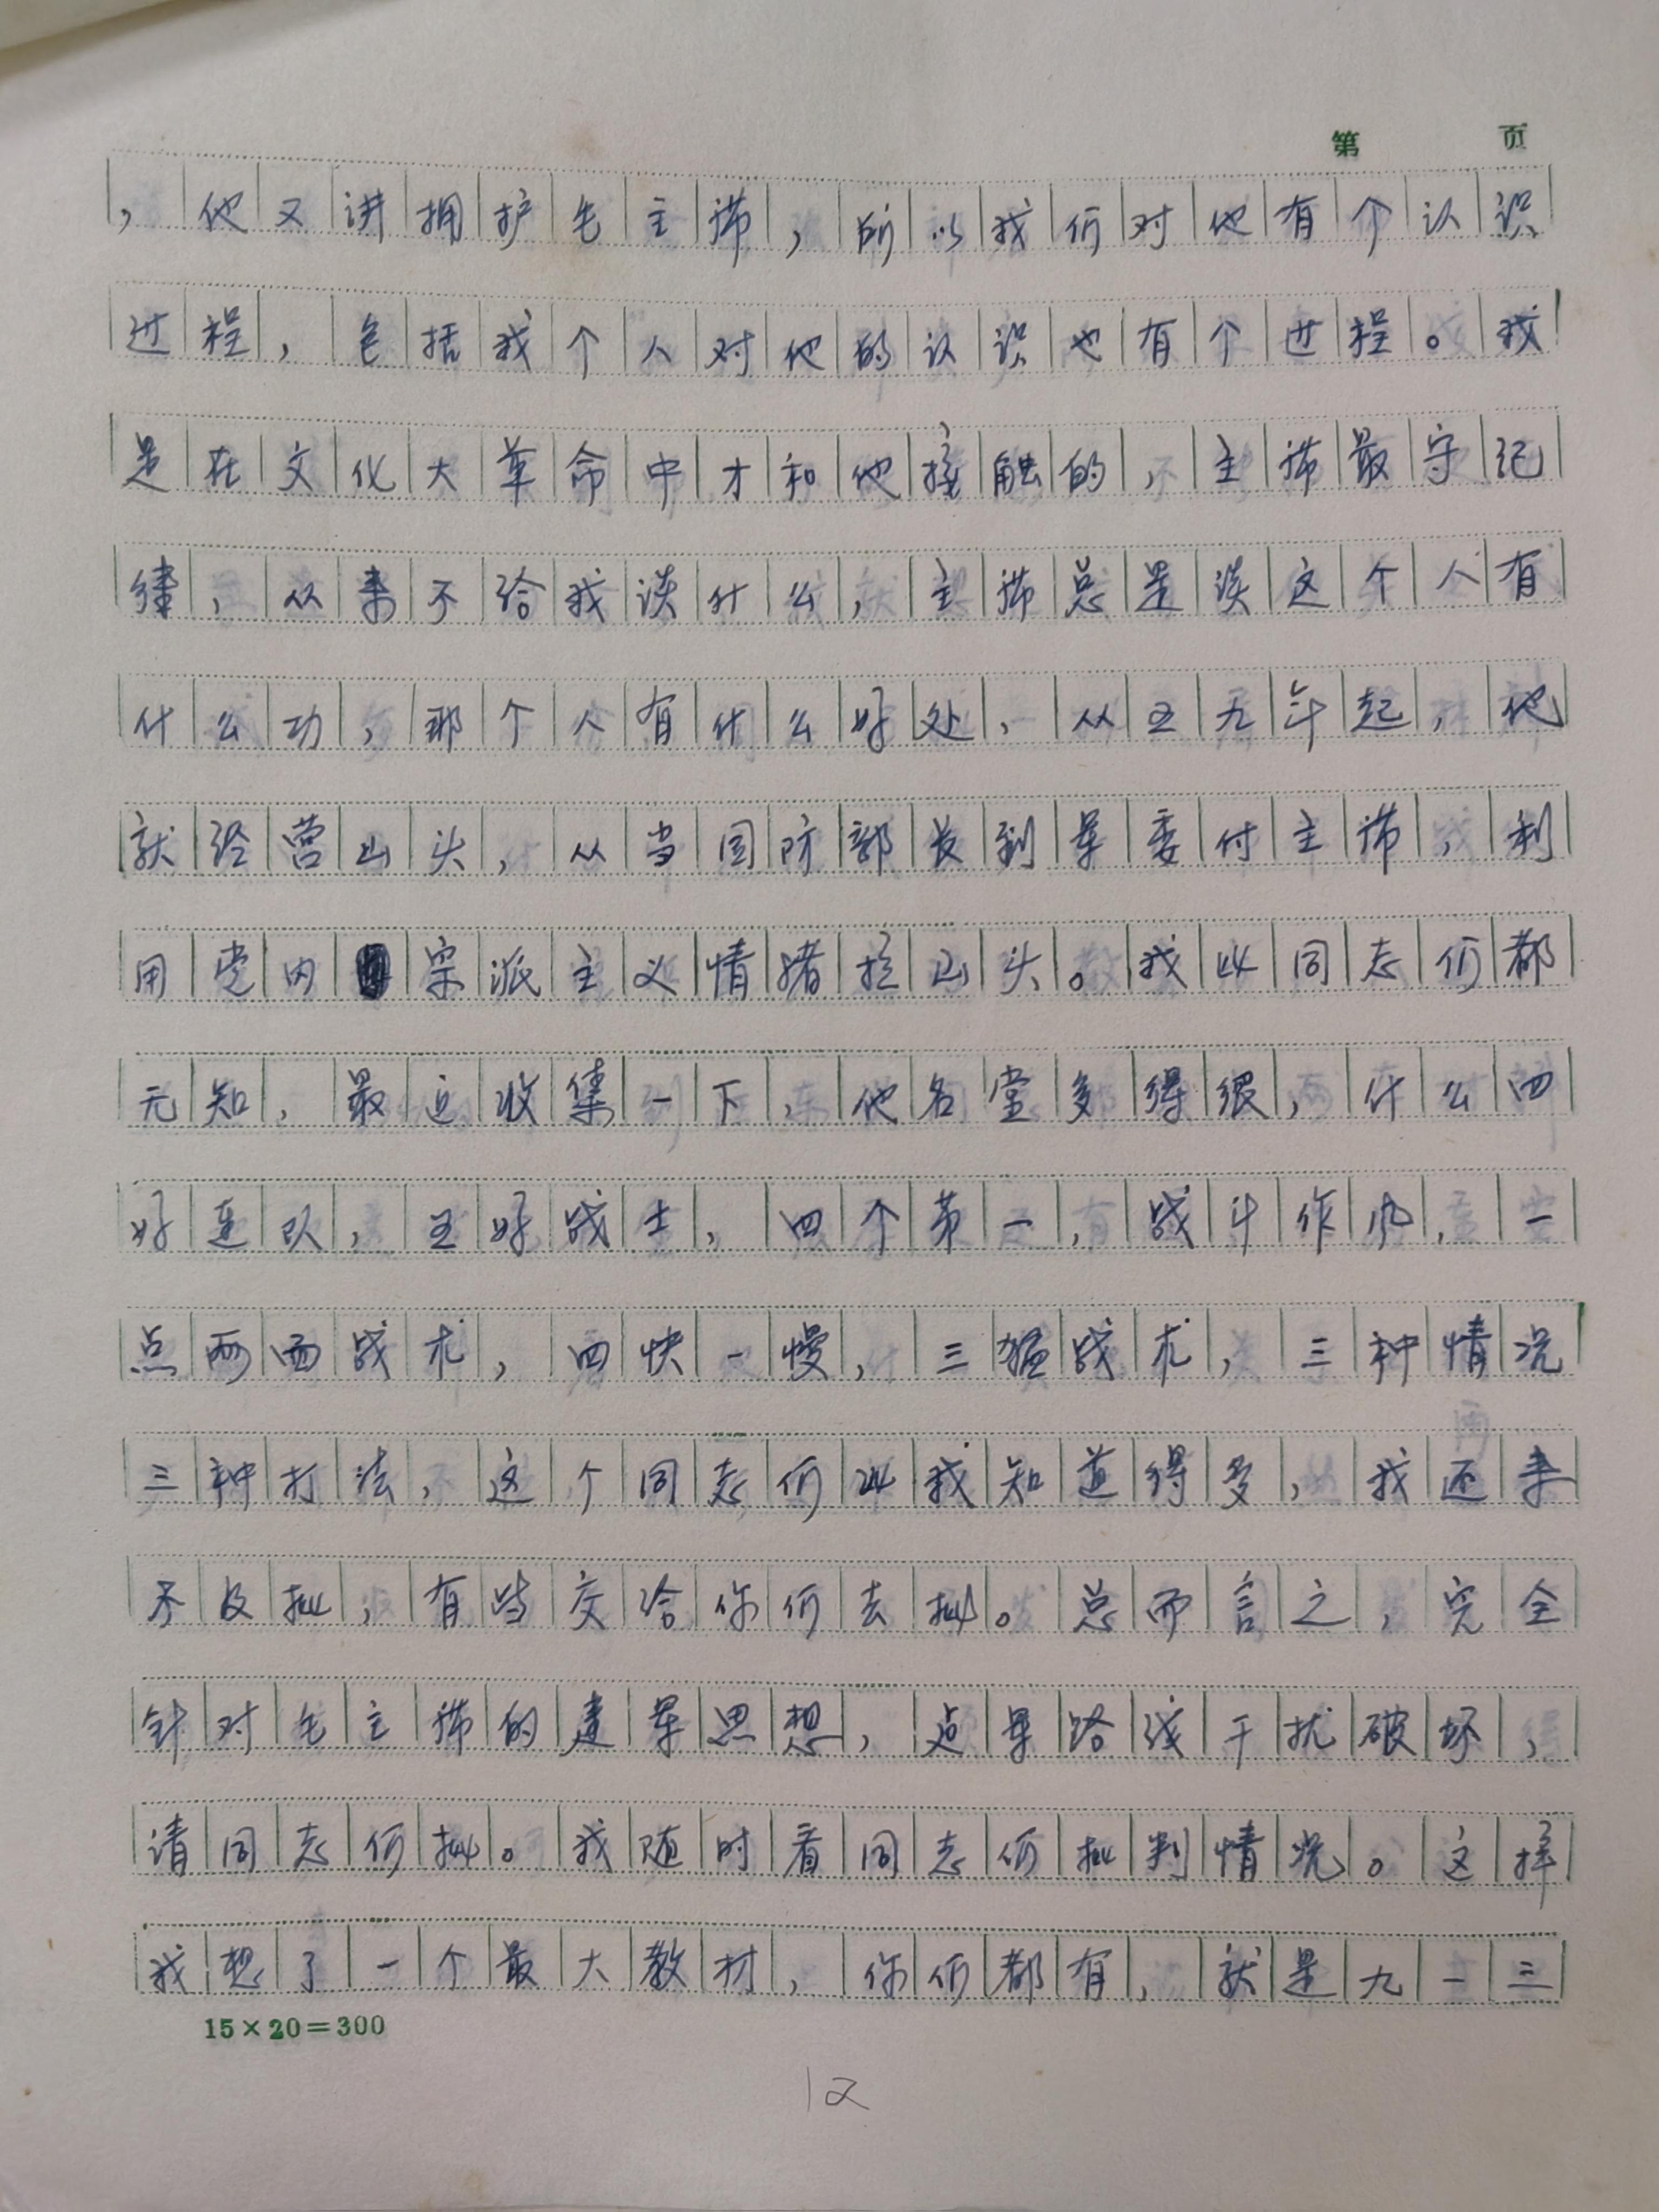 第 页
，他又讲拥护毛主席，所以我们对他有个认识
过程，包括我个人对他的认识也有个过程。我
是在文化大革命中才和他接触的，主席最守纪
律，从来不给我谈什么，主席总是谈这个人有
什么功，那个人有什么好处，从五九年起，他
就经营山头，从当国防部长到军委付主席，利
用党内宗派主义情绪拉山头。我比同志们都
无知，最近收集一下，他名堂多得很，什么四
好连队，五好战士，四个第一，战斗作风，一
点两面战术，四快一慢，三猛战术，三种情况
三种打法，这个同志们比我知道得多，我还来
不及批，有些交给你们去批。总而言之，完全
针对毛主席的建军思想，建军路线干扰破坏，
请同志们批。我随时看同志们批判情况。这样
我想了一个最大教材，你们都有，就是九一三
15×20=300
12